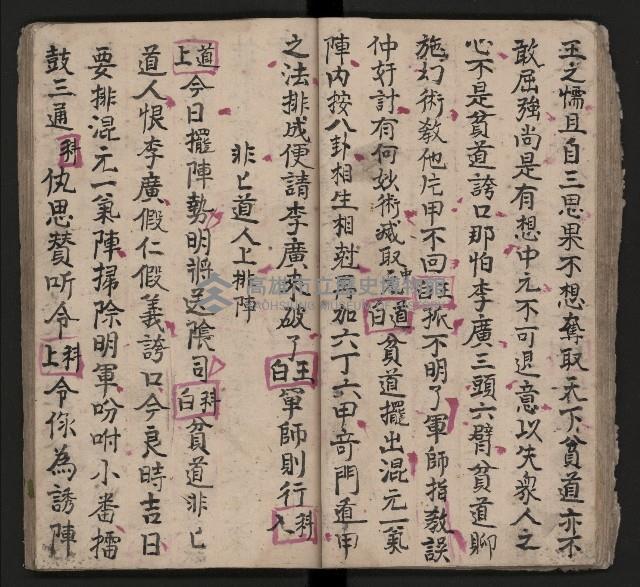 王之懦且自三思果不想奪取天下貧道亦不
敢屈強尚是有想中元不可退意以失衆人之
心不是貧道誇口那怕李廣三頭六臂貧道聊
施幻術教他片甲不回王白孤不明了軍師指教誤
仲好討有何妙術滅取 道白貧道擺出混元一氣
陣内按八卦相生相尅 加六丁六甲奇門遁甲
之法排成便請李廣來破了王白軍師則行科入
非匕道人上排陣
道上今日擺陣勢明將送陰司科白貧道非匕
道人恨李廣假仁假義誇口今良時吉日
要排混元一氣陣掃除明軍吩咐小番擂
鼓三通科 思賛听令科上令你為誘陣
高雄市立歷史博物館
KAOHSIUNG MUSEUM OF HISTORY